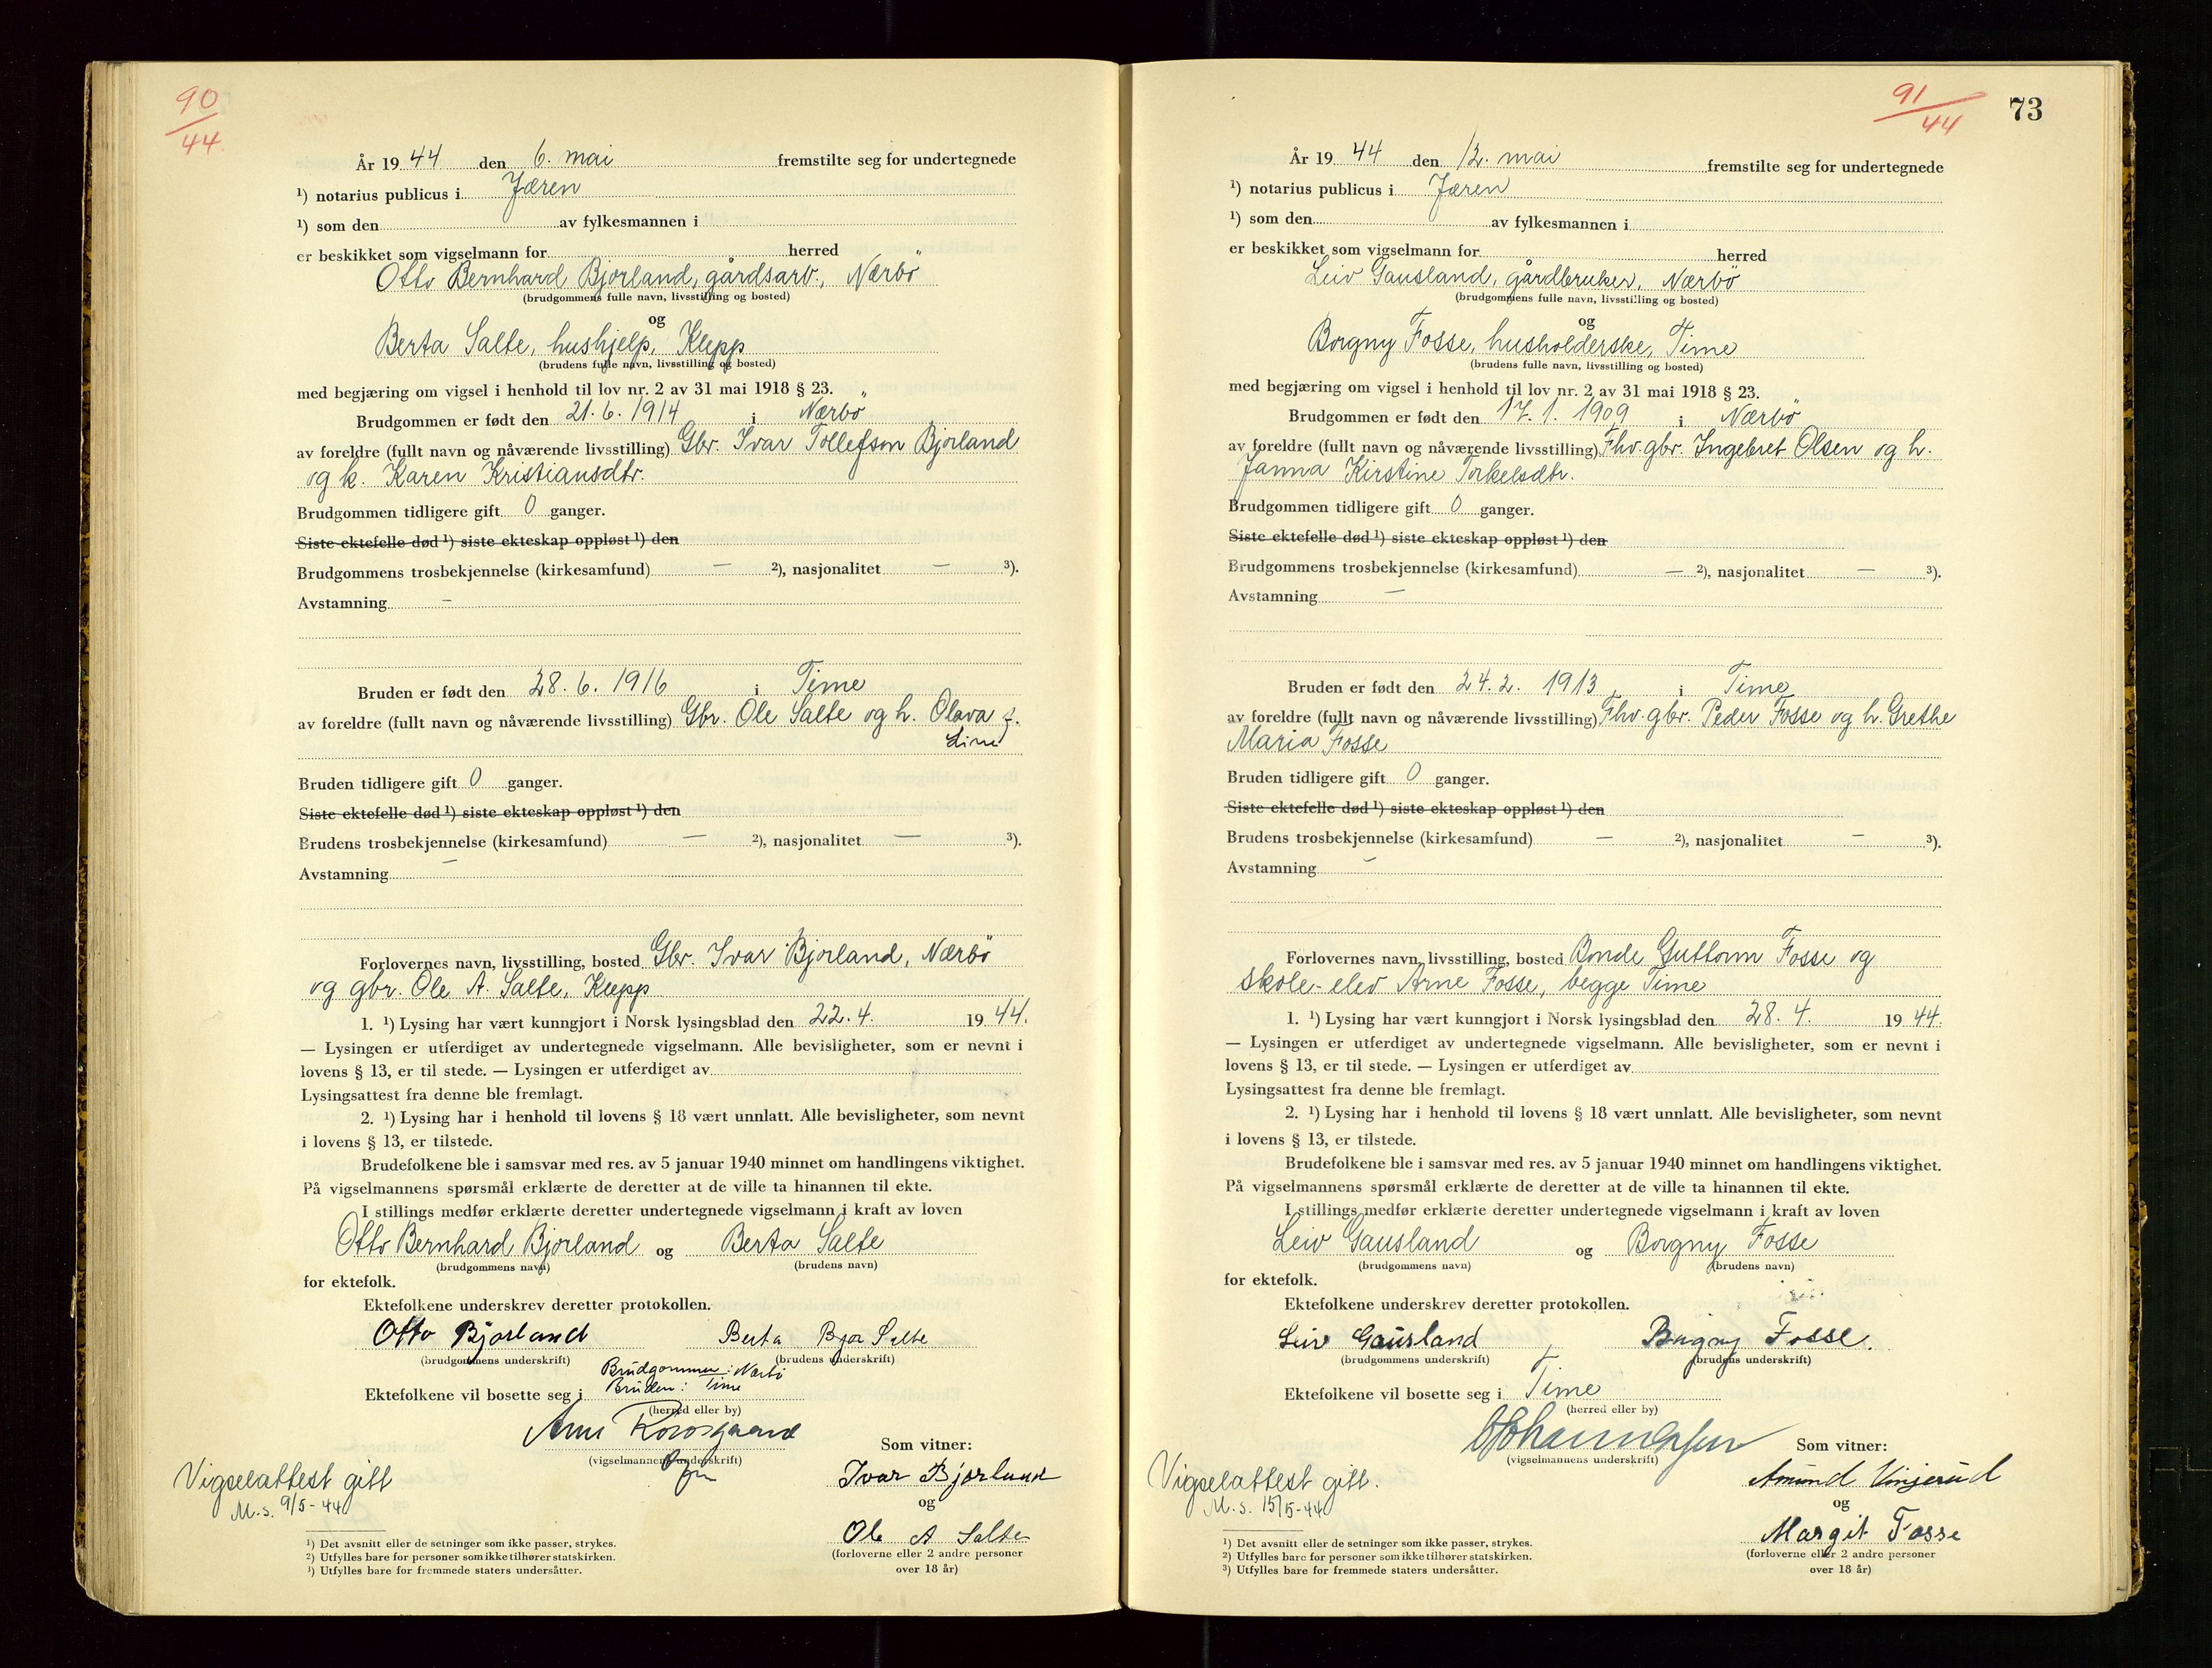 90
44
År 19 44 den 6. mai fremstilte seg for undertegnede
¹) notarius publicus i Jæren
¹) som den av fylkesmannen i
er beskikket som vigselmann for herred
Otto Bernhard Bjorland, gårdsarb., Nærbö
(brudgommens fulle navn, livsstilling og bosted)
og
Berta Salte, hushjelp, Klepp
(brudens fulle navn, livsstilling og bosted)
med begjæring om vigsel i henhold til lov nr. 2 av 31 mai 1918 § 23.
Brudgommen er født den 21. 6. 1914 i Nærbö
av foreldre (fullt navn og nåværende livsstilling) Gbr. Ivar Tollefson Bjorland
og h. Karen Kristiansdtr.
Brudgommen tidligere gift 0 ganger.
Siste ektefelle død ¹) siste ekteskap oppløst ¹) den
Brudgommens trosbekjennelse (kirkesamfund) — ²), nasjonalitet — ³).
Avstamning —
Bruden er født den 28. 6. 1916 i Time
av foreldre (fullt navn og nåværende livsstilling) Gbr. Ole Salte og h. Olava f.
Line
Bruden tidligere gift 0 ganger.
Siste ektefelle død ¹) siste ekteskap oppløst ¹) den
Brudens trosbekjennelse (kirkesamfund) — ²), nasjonalitet — ³).
Avstamning —
Forlovernes navn, livsstilling, bosted Gbr. Ivar Bjorland, Nærbö
og gbr. Ole A. Salte, Klepp
1. ¹) Lysing har vært kunngjort i Norsk lysingsblad den 22. 4. 19 44.
— Lysingen er utferdiget av undertegnede vigselmann. Alle bevisligheter, som er nevnt i
lovens § 13, er til stede. — Lysingen er utferdiget av
Lysingsattest fra denne ble fremlagt.
2. ¹) Lysing har i henhold til lovens § 18 vært unnlatt. Alle bevisligheter, som nevnt
i lovens § 13, er tilstede.
Brudefolkene ble i samsvar med res. av 5 januar 1940 minnet om handlingens viktighet.
På vigselmannens spørsmål erklærte de deretter at de ville ta hinannen til ekte.
I stillings medfør erklærte deretter undertegnede vigselmann i kraft av loven
Otto Bernhard Bjorland og Berta Salte
(brudgommens navn) (brudens navn)
for ektefolk.
Ektefolkene underskrev deretter protokollen.
Otto Bjorland Berta Bjor Salte
(brudgommens underskrift) (brudens underskrift)
Brudgommen: Nærbö
Ektefolkene vil bosette seg i Bruden: Time
(herred eller by)
(vigselmannens underskrift)
Som vitner:
Ivar Bjorland
og
Ole A Salte
(forloverne eller 2 andre personer
over 18 år)
Vigselattest gitt
M.s. 9/5-44
¹) Det avsnitt eller de setninger som ikke passer, strykes.
²) Utfylles bare for personer som ikke tilhører statskirken.
³) Utfylles bare for fremmede staters undersåtter.
91
44
73
År 19 44 den 12. mai fremstilte seg for undertegnede
¹) notarius publicus i Jæren
¹) som den av fylkesmannen i
er beskikket som vigselmann for herred
Leiv Gausland, gårdbruker, Nærbö
(brudgommens fulle navn, livsstilling og bosted)
og
Borgny Fosse, husholderske, Time
(brudens fulle navn, livsstilling og bosted)
med begjæring om vigsel i henhold til lov nr. 2 av 31 mai 1918 § 23.
Brudgommen er født den 17. 1. 1909 i Nærbö
av foreldre (fullt navn og nåværende livsstilling) Fhv. gbr. Ingebret Olsen og h.
Janna Kirstine Torkelsdtr.
Brudgommen tidligere gift 0 ganger.
Siste ektefelle død ¹) siste ekteskap oppløst ¹) den
Brudgommens trosbekjennelse (kirkesamfund) — ²), nasjonalitet — ³).
Avstamning —
Bruden er født den 24. 2. 1913 i Time
av foreldre (fullt navn og nåværende livsstilling) Fhv. gbr. Peder Fosse og h. Grethe
Maria Fosse
Bruden tidligere gift 0 ganger.
Siste ektefelle død ¹) siste ekteskap oppløst ¹) den
Brudens trosbekjennelse (kirkesamfund) — ²), nasjonalitet — ³).
Avstamning —
Forlovernes navn, livsstilling, bosted Bonde Guttorm Fosse og
skole-elev Arne Fosse, begge Time
1. ¹) Lysing har vært kunngjort i Norsk lysingsblad den 28. 4. 19 44.
— Lysingen er utferdiget av undertegnede vigselmann. Alle bevisligheter, som er nevnt i
lovens § 13, er til stede. — Lysingen er utferdiget av
Lysingsattest fra denne ble fremlagt.
2. ¹) Lysing har i henhold til lovens § 18 vært unnlatt. Alle bevisligheter, som nevnt
i lovens § 13, er tilstede.
Brudefolkene ble i samsvar med res. av 5 januar 1940 minnet om handlingens viktighet.
På vigselmannens spørsmål erklærte de deretter at de ville ta hinannen til ekte.
I stillings medfør erklærte deretter undertegnede vigselmann i kraft av loven
Leiv Gausland og Borgny Fosse
(brudgommens navn) (brudens navn)
for ektefolk.
Ektefolkene underskrev deretter protokollen.
Leiv Gausland Borgny Fosse.
(brudgommens underskrift) (brudens underskrift)
Ektefolkene vil bosette seg i Time
(herred eller by)
(vigselmannens underskrift)
Som vitner:
Amund Vinjerud
og
Margit Fosse
(forloverne eller 2 andre personer
over 18 år)
Vigselattest gitt.
M.s. 15/5-44
¹) Det avsnitt eller de setninger som ikke passer, strykes.
²) Utfylles bare for personer som ikke tilhører statskirken.
³) Utfylles bare for fremmede staters undersåtter.